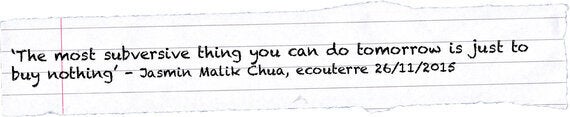 ‘The most subversive thing you can do tomorrow is just to
buy nothing’ – Jasmin Malik Chua, ecouterre 26/11/2015